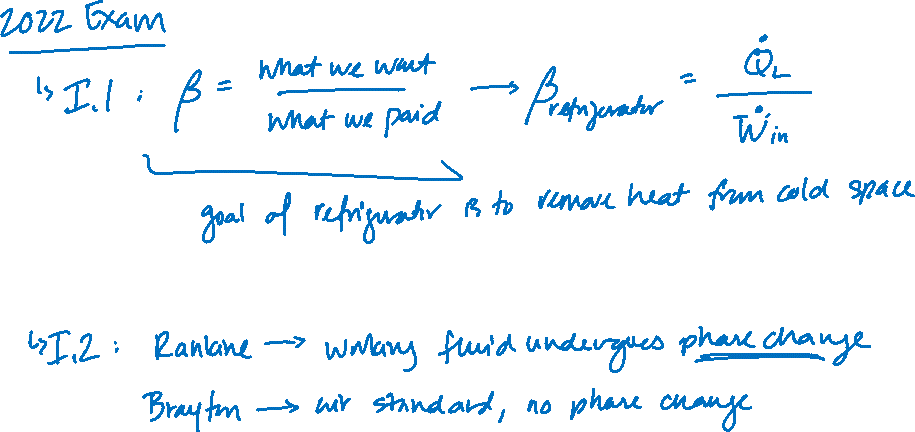 2022 Exam
↳ I.1 : β = what we want / what we paid → β refrigerator = Q̇L / Ẇin
goal of refrigerator is to remove heat from cold space
↳ I.2 : Rankine → working fluid undergoes phase change
Brayton → air standard, no phase change